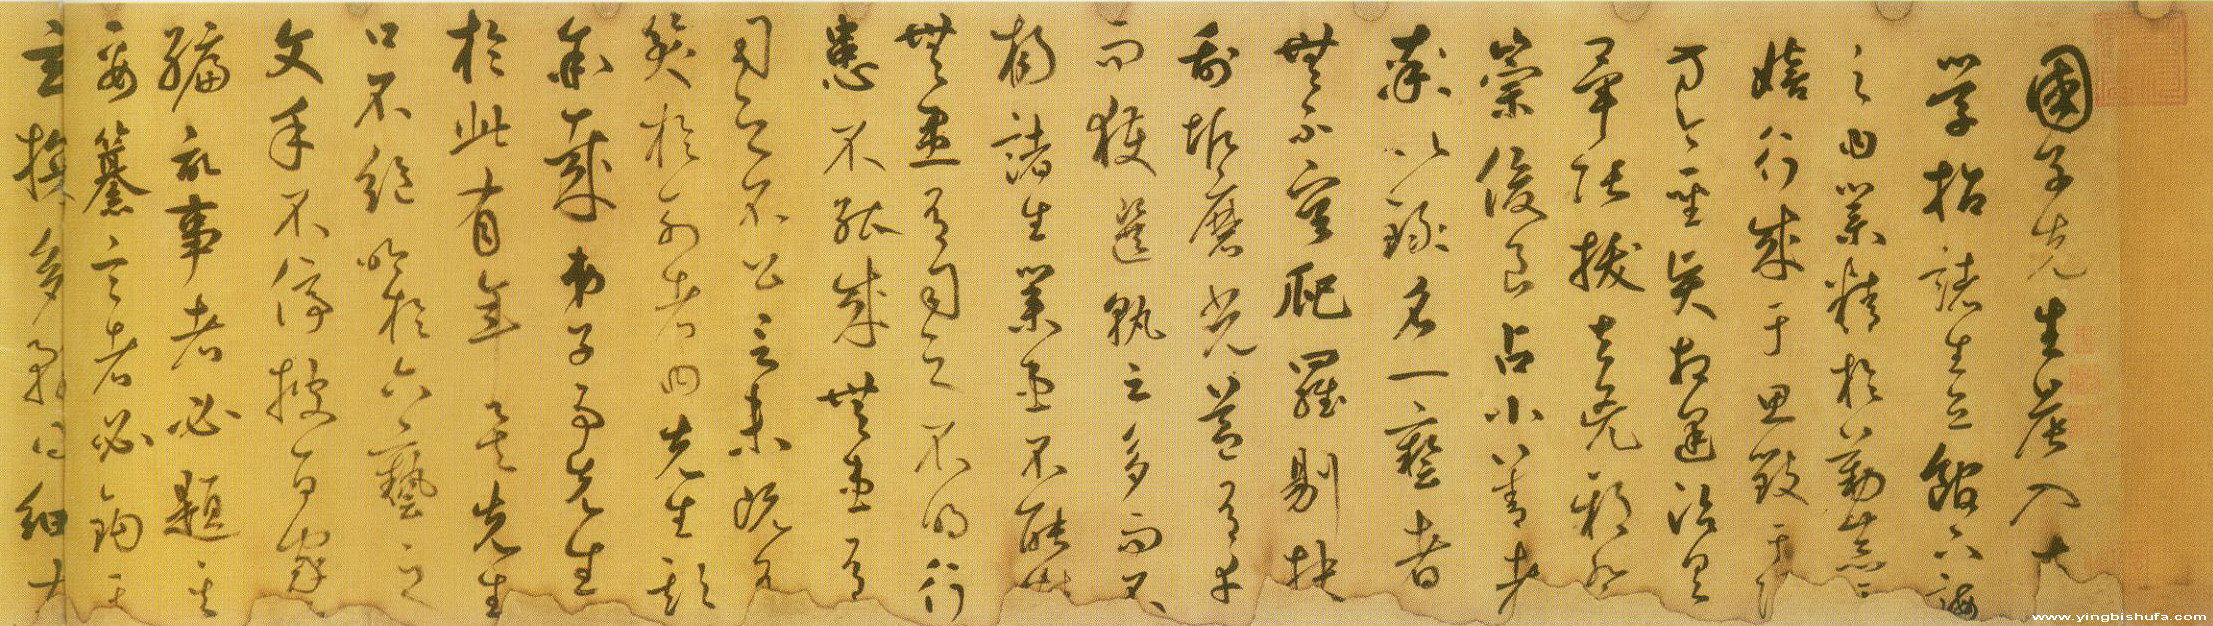 國子先生晨入太
學招諸生立館下誨
之曰業精於勤荒于
嬉行成于思毀于隨
方今聖賢相逢治具
畢張拔去兇邪登
崇俊良占小善者
率以錄名一藝者
無不庸爬羅剔抉
刮垢磨光蓋有幸
而獲選孰云多而不
揚諸生業患不能精
無患有司之不明行
患不能成無患有
司之不公言未既有
笑於列者曰先生欺
余哉弟子事先生
於此有年矣先生
口不絕吟於六藝之
文手不停披百家之
編記事者必題其
要纂言者必鉤其
玄多務得細大
www.yingbishufa.com